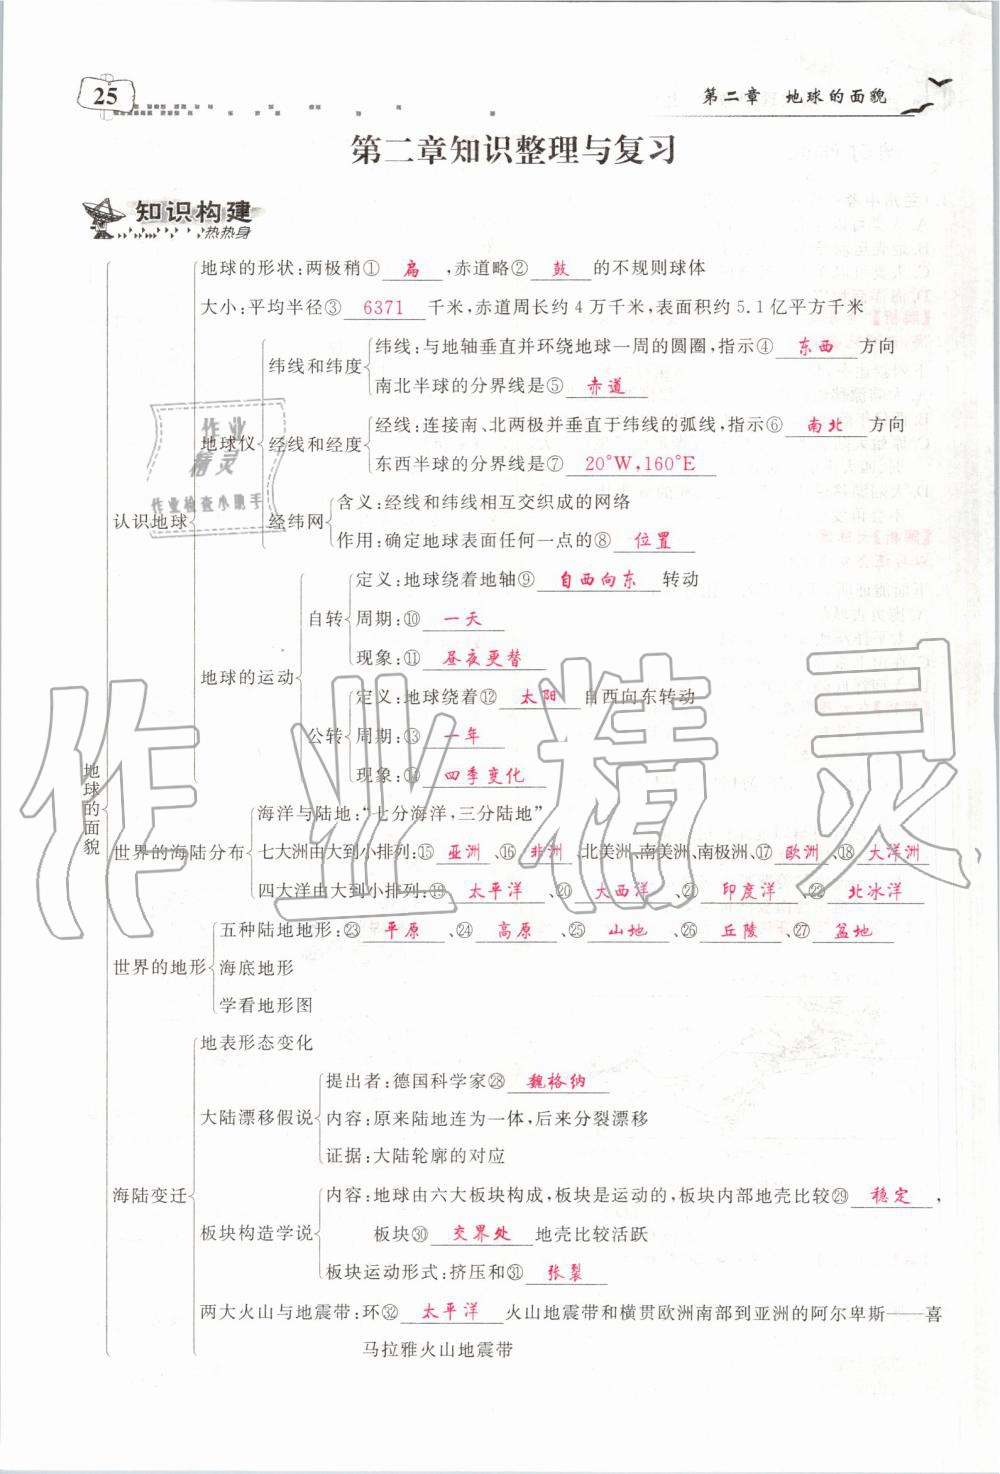 25
第二章 地球的面貌
第二章知识整理与复习
知识构建
热热身
地球的形状:两极稍① 扁 ,赤道略② 鼓 的不规则球体
大小:平均半径③ 6371 千米,赤道周长约4万千米,表面积约5.1亿平方千米
纬线:与地轴垂直并环绕地球一周的圆圈,指示④ 东西 方向
纬线和纬度
南北半球的分界线是⑤ 赤道
经线:连接南、北两极并垂直于纬线的弧线,指示⑥ 南北 方向
地球仪 经线和经度
东西半球的分界线是⑦ 20°W,160°E
含义:经线和纬线相互交织成的网络
认识地球 经纬网
作用:确定地球表面任何一点的⑧ 位置
定义:地球绕着地轴⑨ 自西向东 转动
自转 周期:⑩ 一天
现象:⑪ 昼夜更替
地球的运动
定义:地球绕着⑫ 太阳 自西向东转动
公转 周期:⑬ 一年
现象:⑭ 四季变化
地球的面貌
海洋与陆地:“七分海洋,三分陆地”
世界的海陆分布 七大洲由大到小排列:⑮ 亚洲 、⑯ 非洲 、北美洲、南美洲、南极洲、⑰ 欧洲 、⑱ 大洋洲
四大洋由大到小排列:⑲ 太平洋 、⑳ 大西洋 、㉑ 印度洋 、㉒ 北冰洋
五种陆地地形:㉓ 平原 、㉔ 高原 、㉕ 山地 、㉖ 丘陵 、㉗ 盆地
世界的地形 海底地形
学看地形图
地表形态变化
提出者:德国科学家㉘ 魏格纳
大陆漂移假说 内容:原来陆地连为一体,后来分裂漂移
证据:大陆轮廓的对应
海陆变迁
内容:地球由六大板块构成,板块是运动的,板块内部地壳比较㉙ 稳定 ,
板块构造学说 板块㉚ 交界处 地壳比较活跃
板块运动形式:挤压和㉛ 张裂
两大火山与地震带:环㉜ 太平洋 火山地震带和横贯欧洲南部到亚洲的阿尔卑斯——喜
马拉雅火山地震带
作业
精灵
作业检查小助手
作业精灵